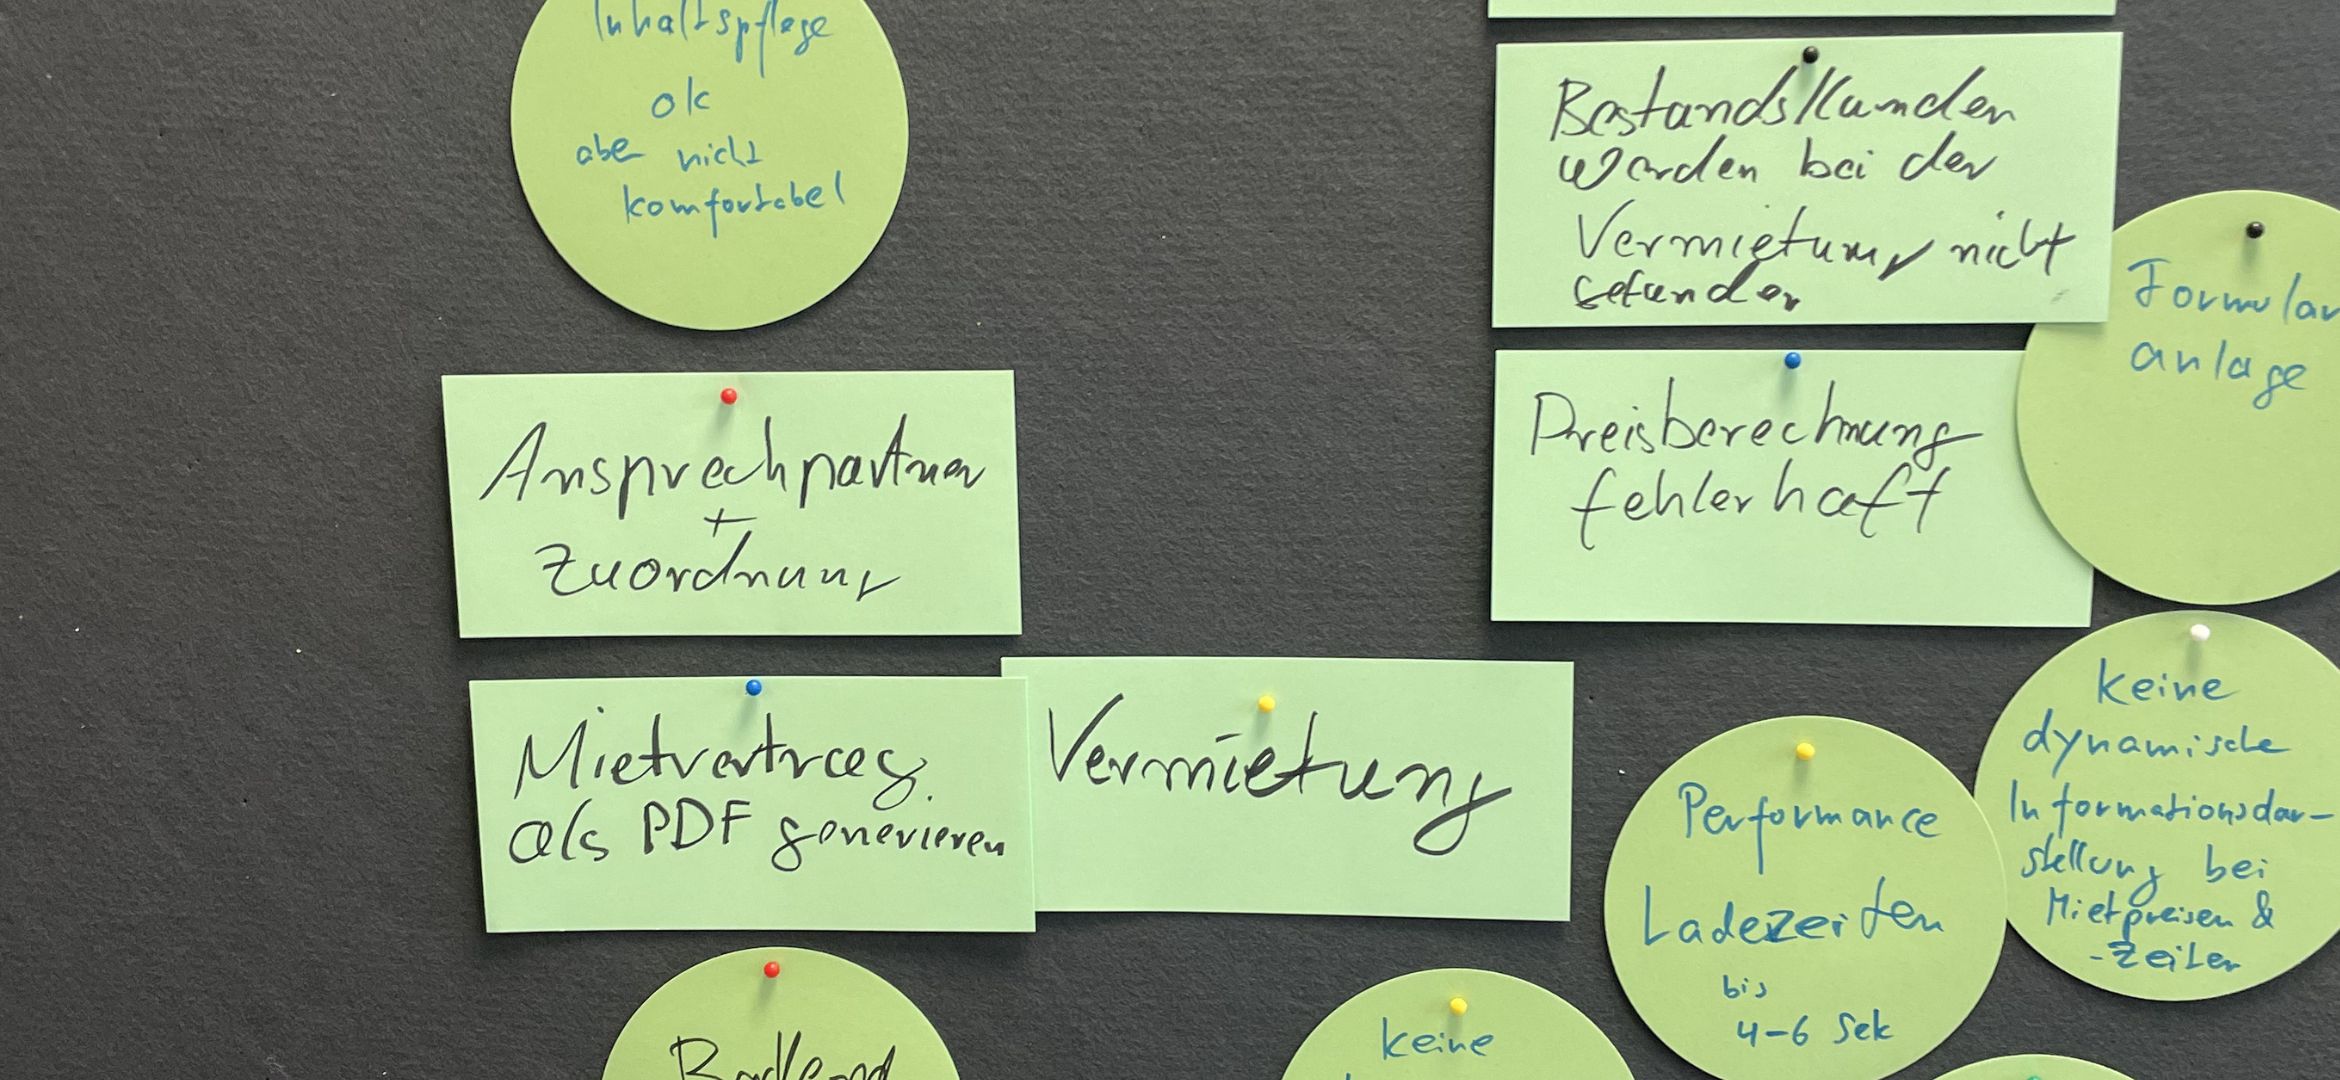 Inhaltspflege
ok
abe nicht
komfortabel
Bestandskunden
werden bei der
Vermietung nicht
gefunden
Formular
anlage
Ansprechpartner
+
Zuordnung
Preisberechnung
fehlerhaft
Mietvertrag
als PDF generieren
Vermietung
keine
dynamische
Informationsdar-
stellung bei
Mietpreisen &
-Zeiten
Performance
Ladezeiten
bis
4-6 Sek
Backend
keine